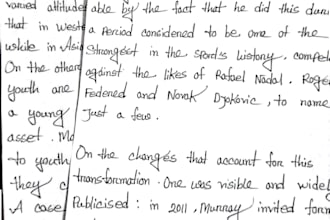 varied attitude
that in West
while in Asia
On the other
youth are
a young
asset. Mo
to youth
they c
A case
able by the fact that he did this duri
a period considered to be one of the
strongest in the sport's history, compe
against the likes of Rafael Nadal, Roge
Federed and Novak Djokovic, to name
Just a few.
On the changes that account for this
transformation. One was visible and widel
Publicised: in 2011, Murray invited form